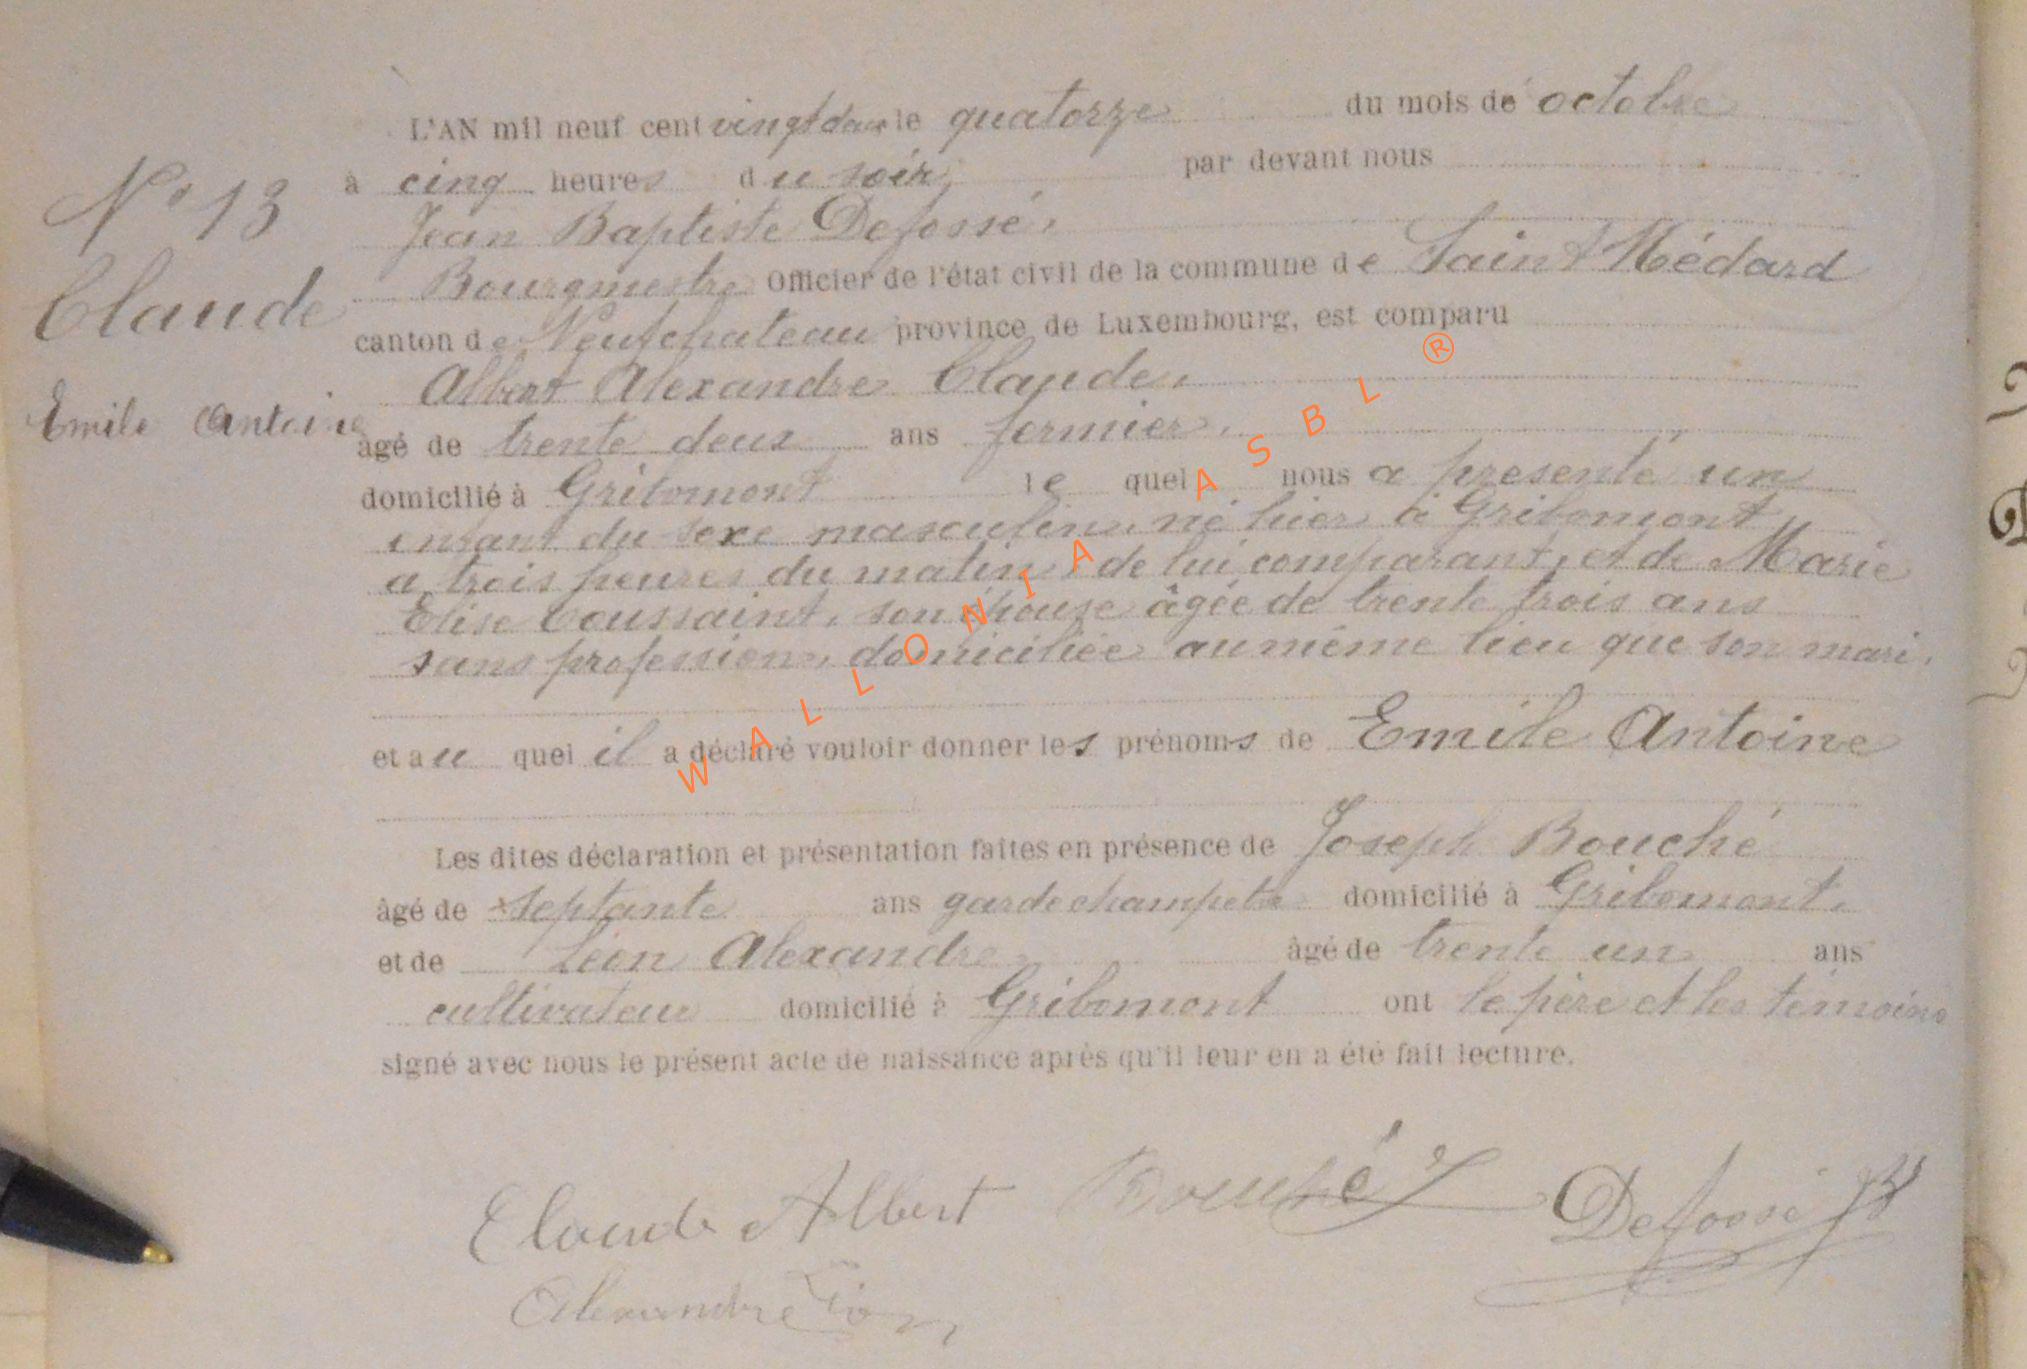 L'AN mil neuf cent vingt deux le quatorze du mois de octobre
à cinq heures du soir, par devant nous
N° 13
Jean Baptiste Defossé,
Bourgmestre Officier de l'état civil de la commune de Saint Médard
Claude
canton de Neufchateau province de Luxembourg, est comparu
Albert Alexandre Claude,
Emile Antoine
âgé de trente deux ans fermier,
domicilié à Gribomont le quel nous a présenté un
enfant du sexe masculin, né hier à Gribomont
a trois heures du matin, de lui comparant, et de Marie
Elise Toussaint, son épouse âgée de trente trois ans
sans profession, domiciliée au même lieu que son mari,
et au quel il a déclaré vouloir donner les prénoms de Emile Antoine
Les dites déclaration et présentation faites en présence de Joseph Bouché
âgé de septante ans garde champetre domicilié à Gribomont,
et de Léon Alexandre âgé de trente un ans
cultivateur domicilié à Gribomont ont le père et les témoins
signé avec nous le présent acte de naissance après qu'il leur en a été fait lecture.
Claude Albert Bouché Defossé JB
Alexandre Léon
WALLONIA ASBL ®